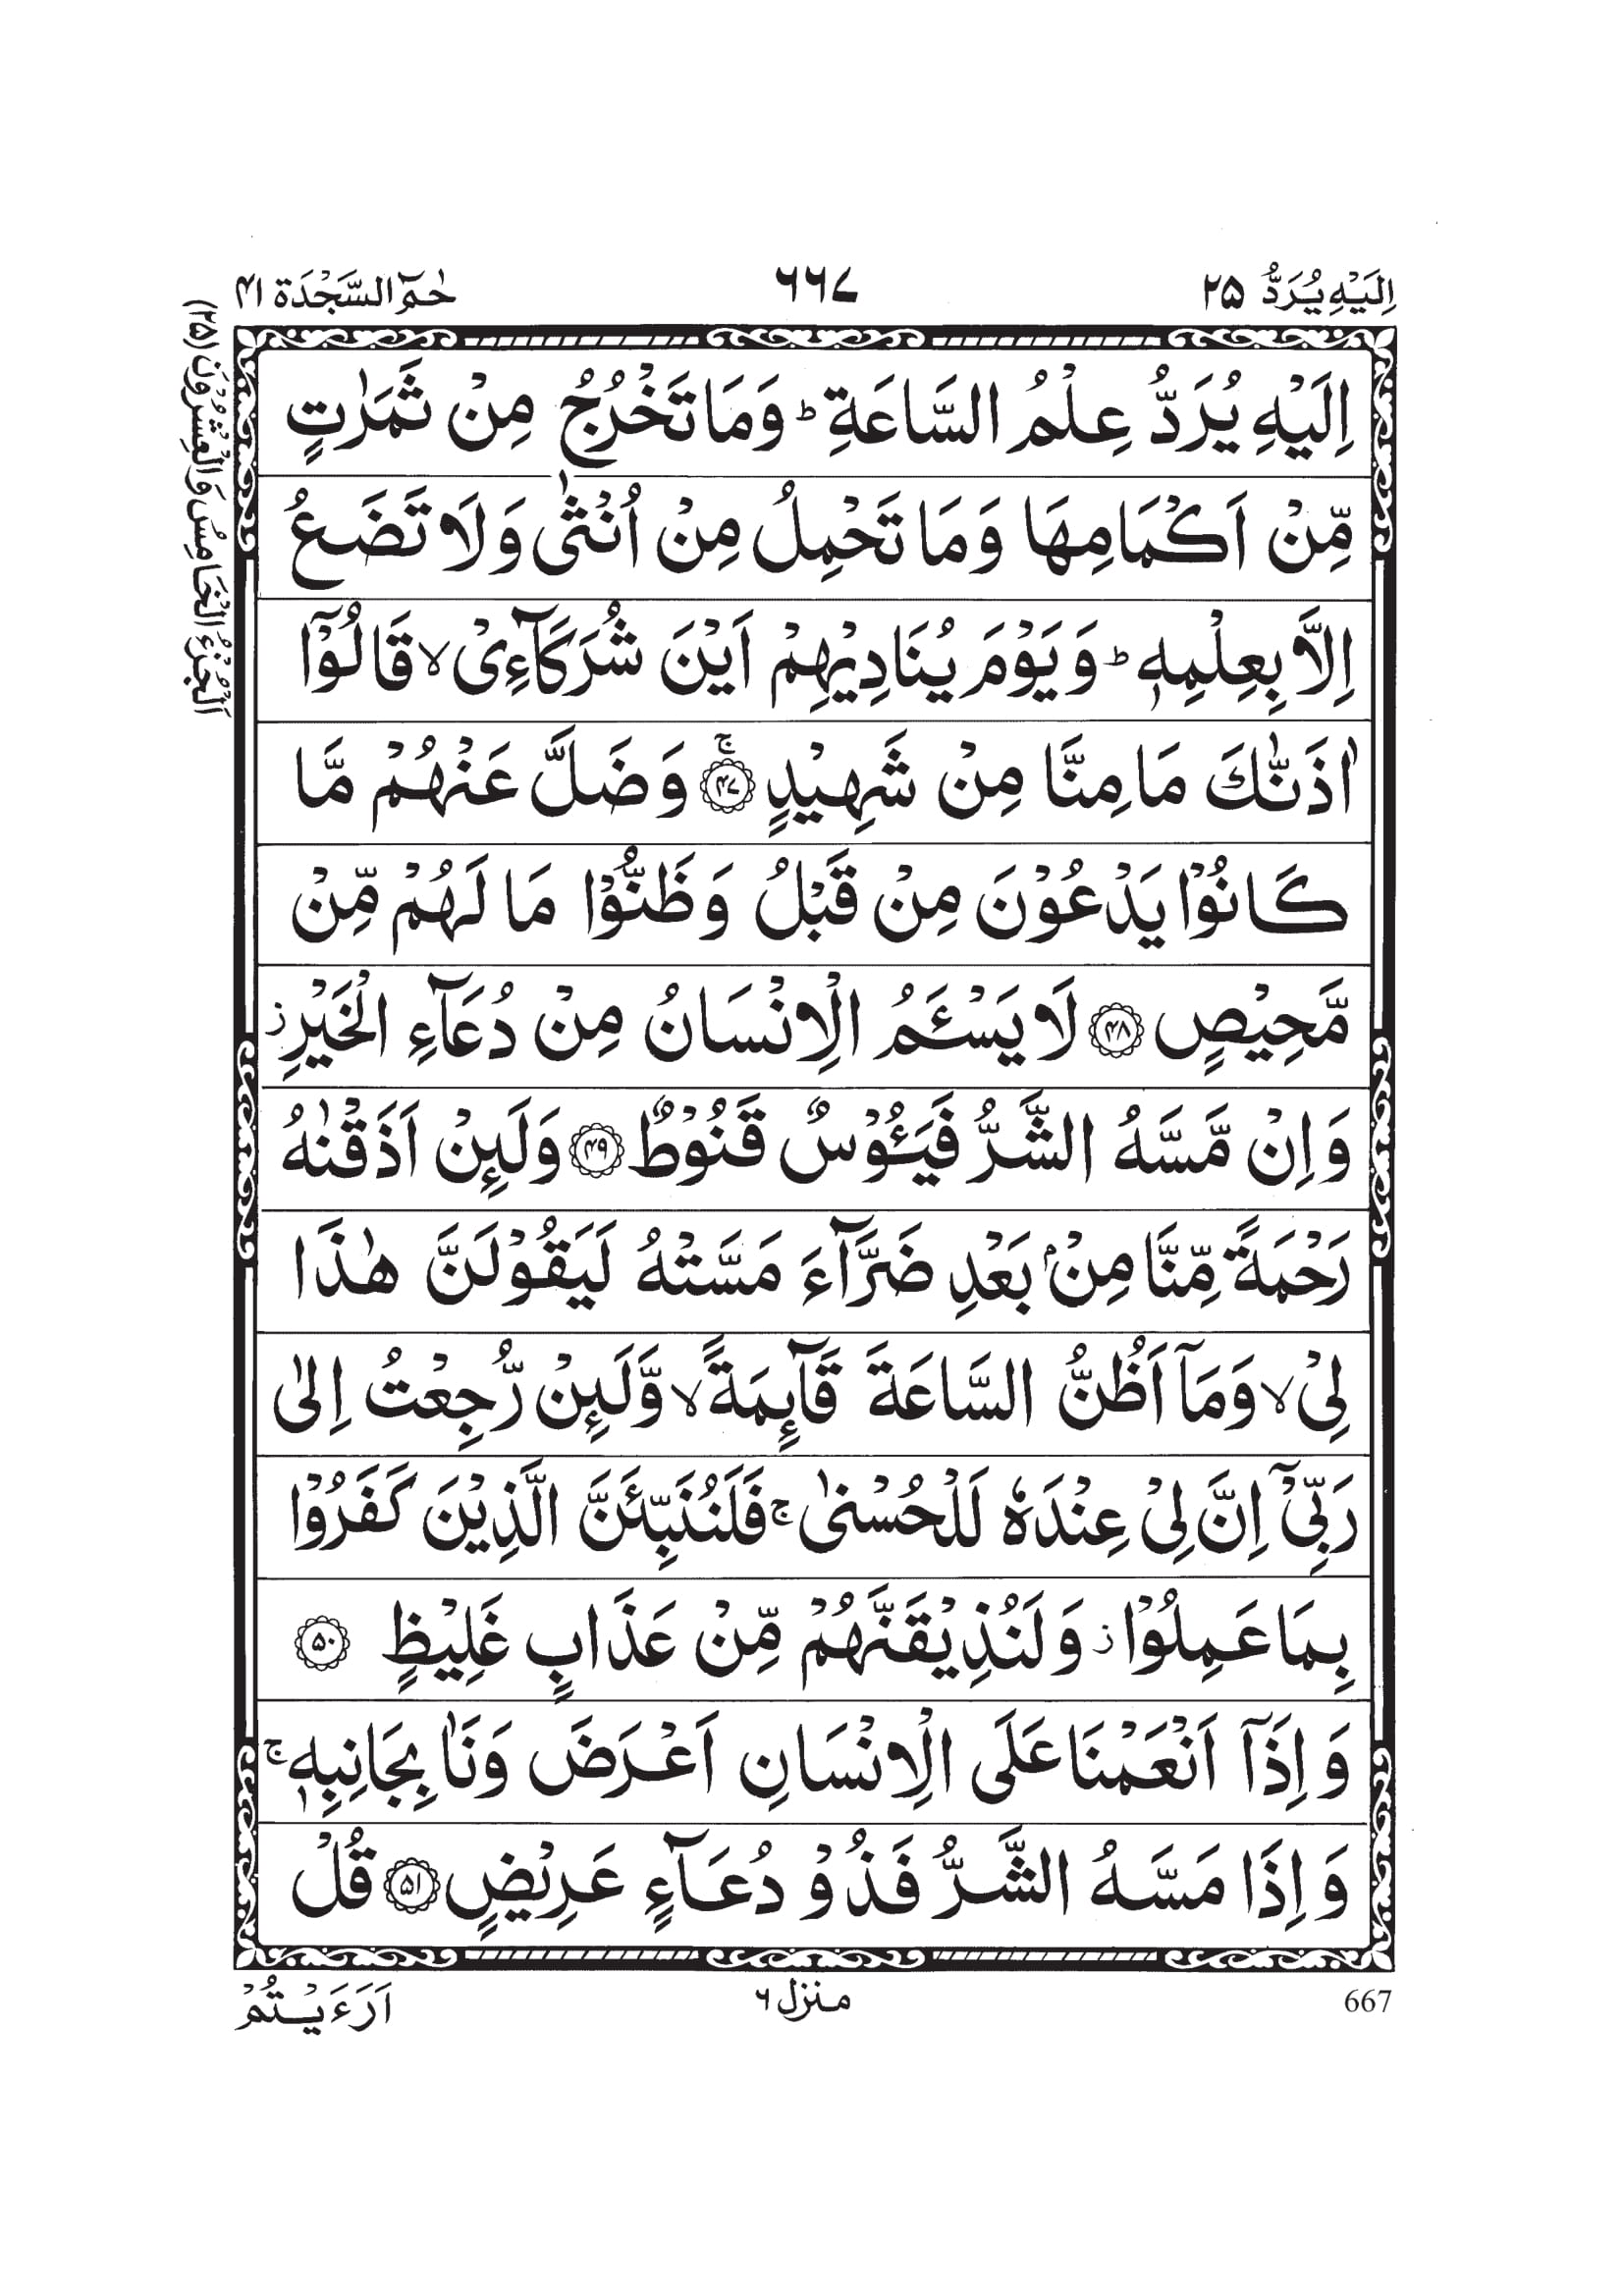 اِلَيْهِ يُرَدُّ ٢٥
٦٦٧
حٰمٓ السَّجْدَة ٤١
اَلْجُزْءُ الْخَامِسُ وَالْعِشْرُوْنَ (٢٥)
اِلَيْهِ يُرَدُّ عِلْمُ السَّاعَةِ ؕ وَمَا تَخْرُجُ مِنْ ثَمَرٰتٍ
مِّنْ اَكْمَامِهَا وَمَا تَحْمِلُ مِنْ اُنْثٰى وَلَا تَضَعُ
اِلَّا بِعِلْمِهٖ ؕ وَيَوْمَ يُنَادِيْهِمْ اَيْنَ شُرَكَآءِىْ ۙ قَالُوْۤا
اٰذَنّٰكَ مَا مِنَّا مِنْ شَهِيْدٍ ۚ ﴿۴۷﴾ وَضَلَّ عَنْهُمْ مَّا
كَانُوْا يَدْعُوْنَ مِنْ قَبْلُ وَظَنُّوْا مَا لَهُمْ مِّنْ
مَّحِيْصٍ ﴿۴۸﴾ لَا يَسْـَٔمُ الْاِنْسَانُ مِنْ دُعَآءِ الْخَيْرِ ز
وَاِنْ مَّسَّهُ الشَّرُّ فَيَـُٔوْسٌ قَنُوْطٌ ﴿۴۹﴾ وَلَئِنْ اَذَقْنٰهُ
رَحْمَةً مِّنَّا مِنْۢ بَعْدِ ضَرَّآءَ مَسَّتْهُ لَيَقُوْلَنَّ هٰذَا
لِىْ ۙ وَمَاۤ اَظُنُّ السَّاعَةَ قَآئِمَةً ۙ وَّلَئِنْ رُّجِعْتُ اِلٰى
رَبِّىْۤ اِنَّ لِىْ عِنْدَهٗ لَلْحُسْنٰى ۚ فَلَنُنَبِّئَنَّ الَّذِيْنَ كَفَرُوْا
بِمَا عَمِلُوْا ز وَلَنُذِيْقَنَّهُمْ مِّنْ عَذَابٍ غَلِيْظٍ ﴿۵۰﴾
وَاِذَاۤ اَنْعَمْنَا عَلَى الْاِنْسَانِ اَعْرَضَ وَنَاٰ بِجَانِبِهٖ ۚ
وَاِذَا مَسَّهُ الشَّرُّ فَذُوْ دُعَآءٍ عَرِيْضٍ ﴿۵۱﴾ قُلْ
667
منزل ٦
اَرَءَيْتُمْ